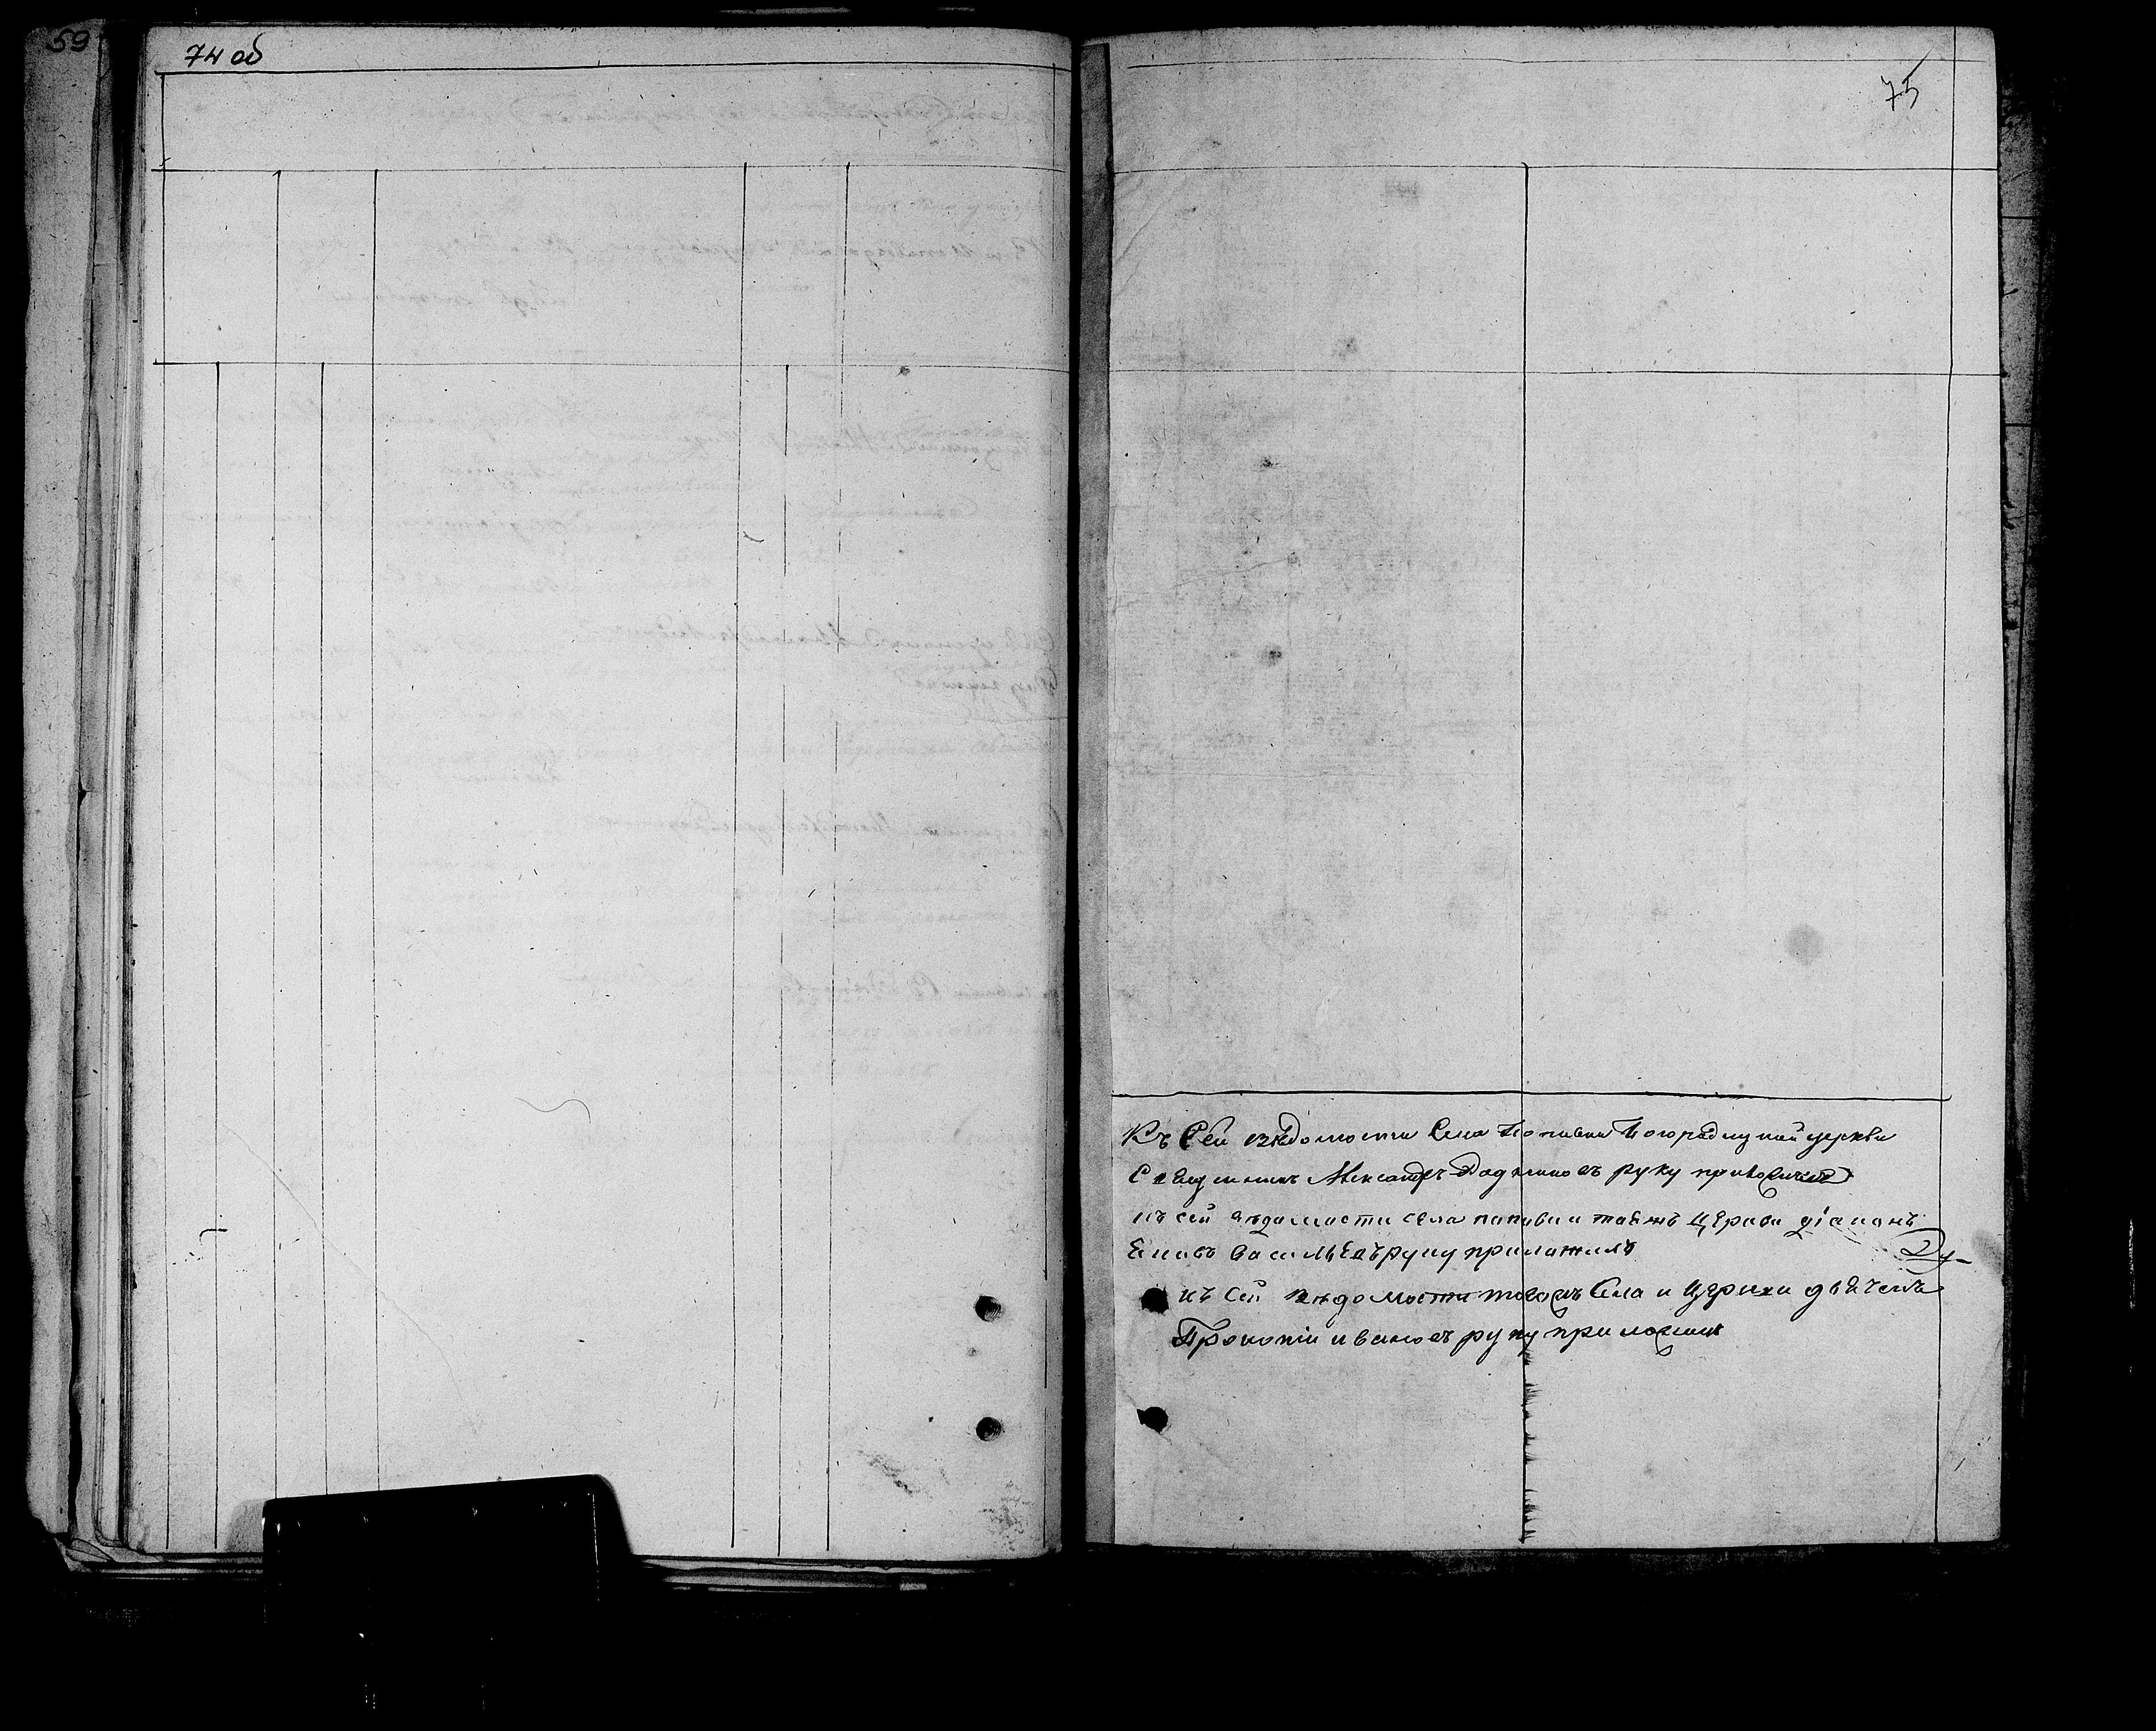 59
74 об
75
Къ Сей вѣдомости Села Попивки Богородицкой церкви
Священникъ Александръ руку приложилъ
къ сей вѣдомости села папивки таежъ церкви діаконъ
Ековъ Васильевъ руку приложилъ
къ Сей вѣдомости тогожъ Села и Церкви дьячекъ
Прокопіи ивановъ руку приложилъ